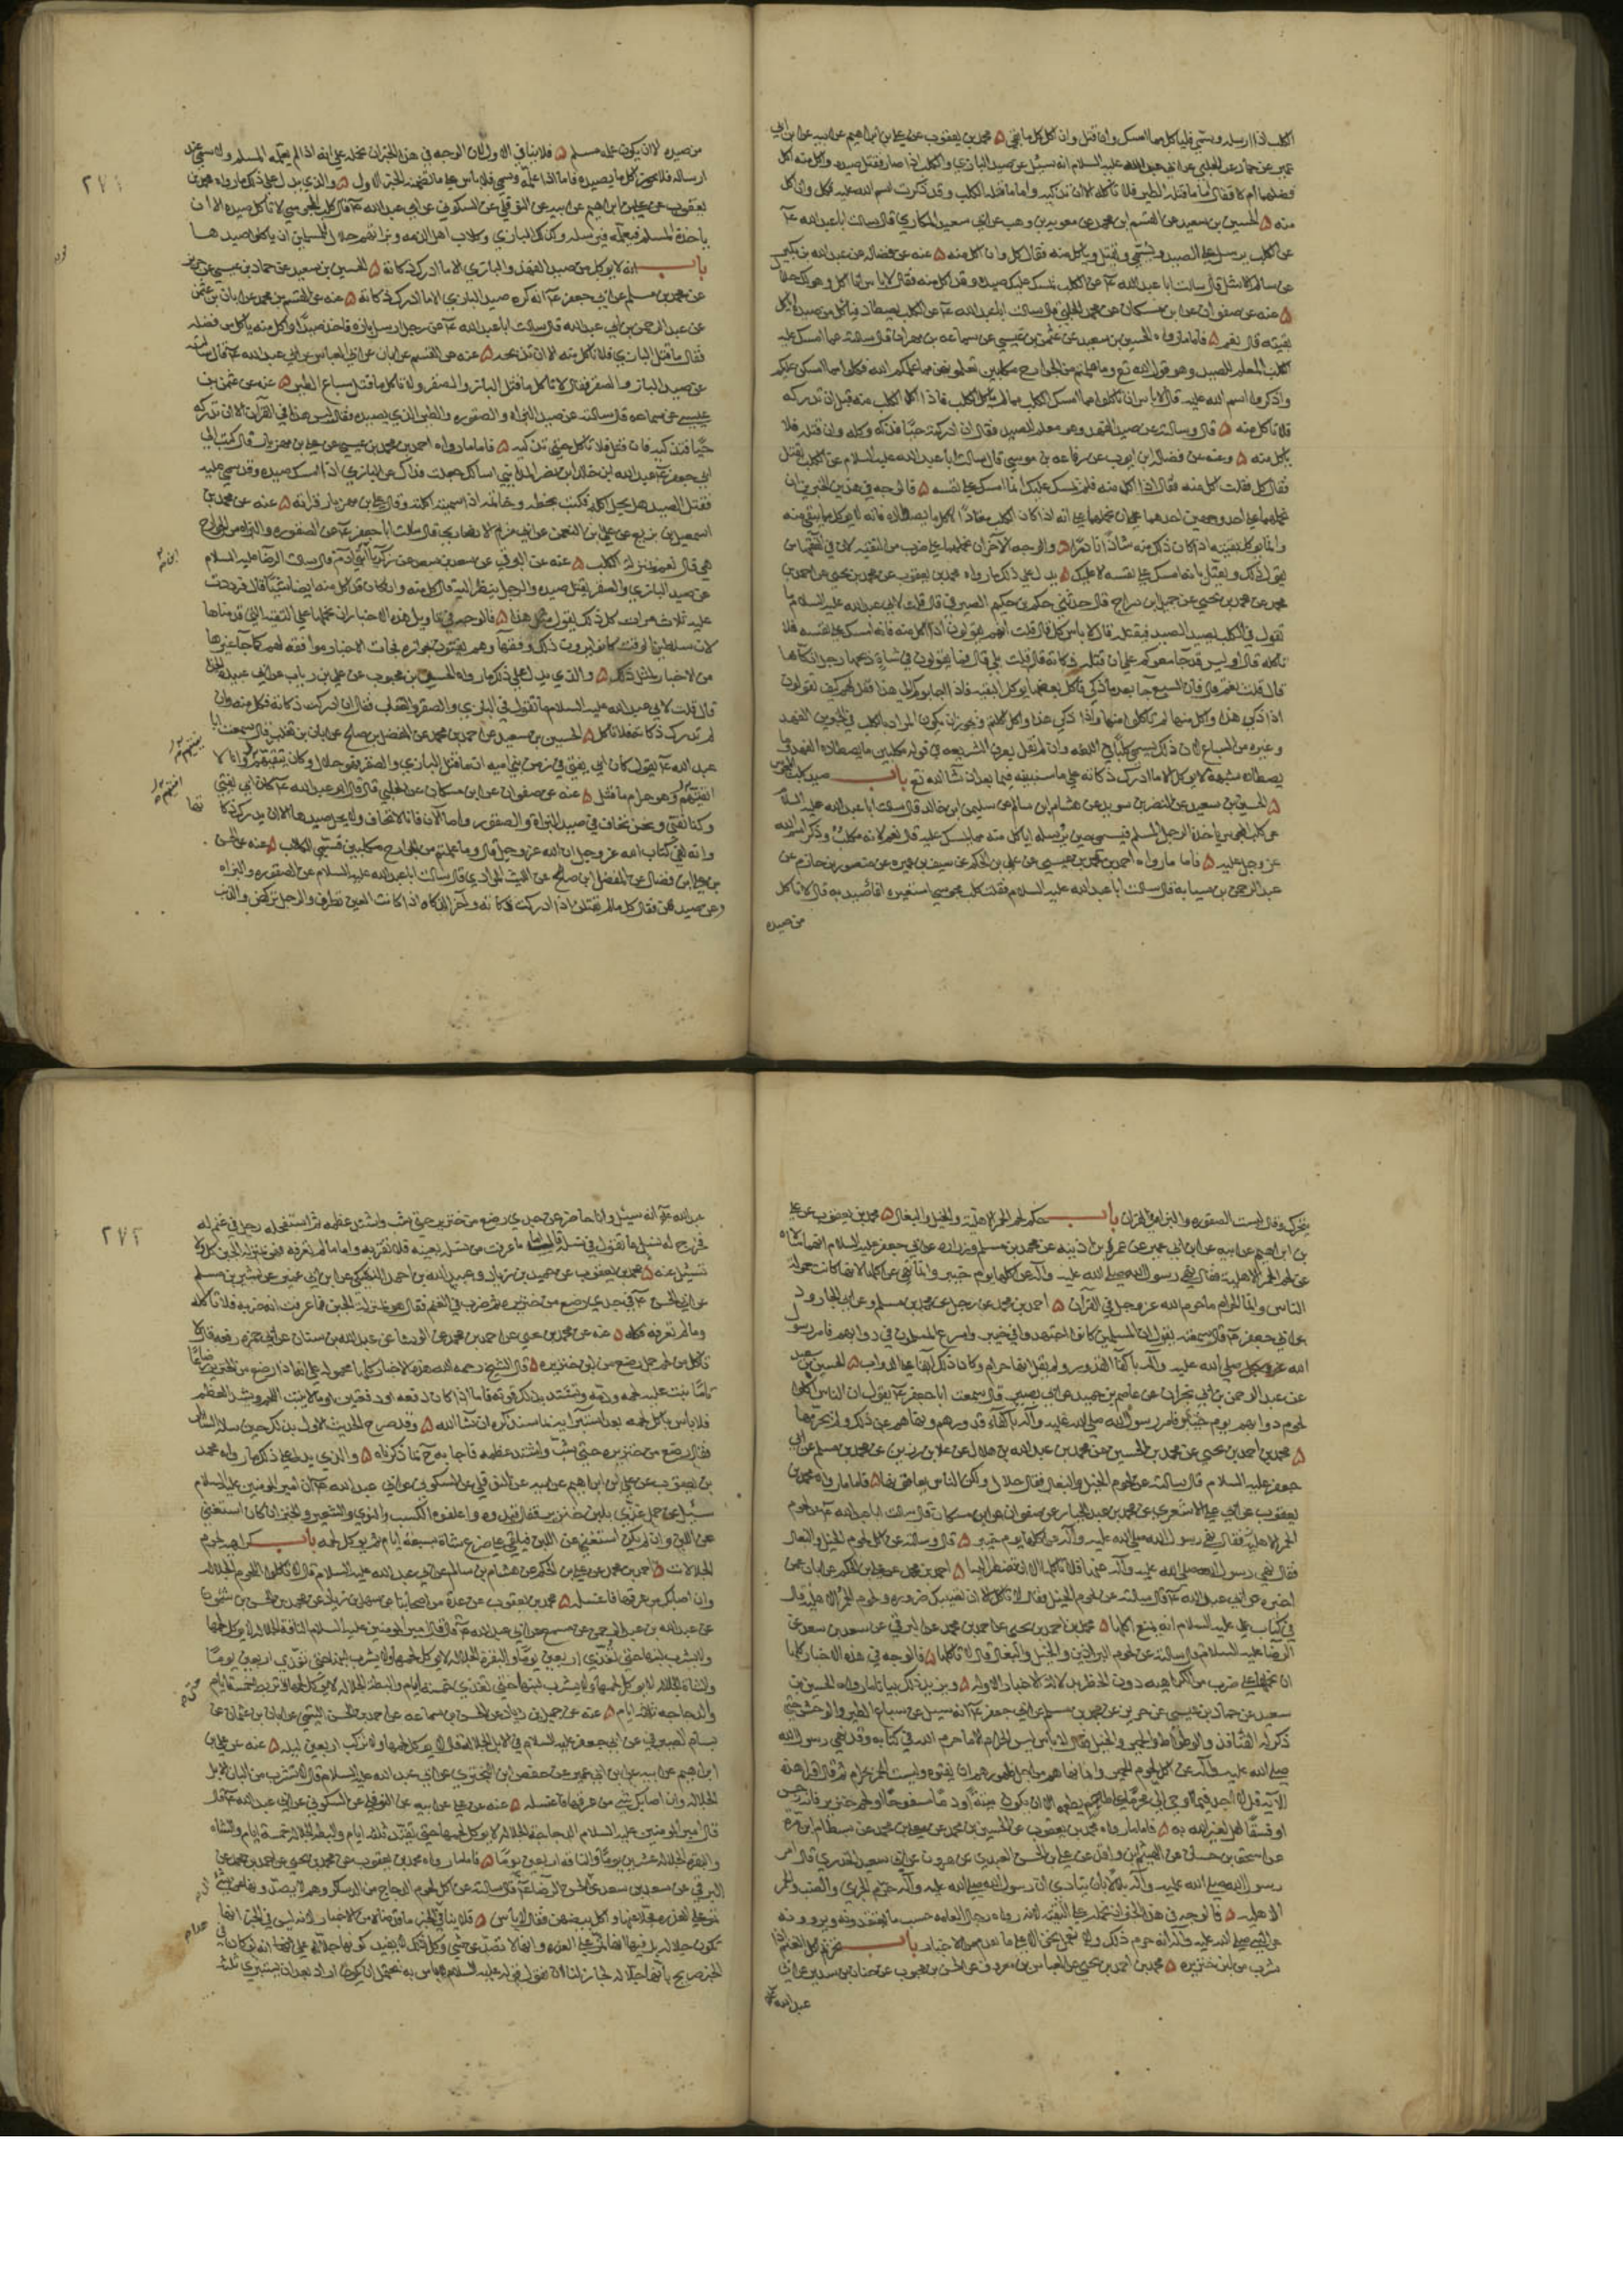 الكلب اذا ارسله وسمى فلياكل مما امسك وان قتل وان اكل كل ما بقى ۵ محمد بن يعقوب عن علي بن ابراهيم عن ابيه عن ابن ابي
عمير عن حماد عن الحلبي عن ابي عبد الله عليه السلام انه سئل عن صيد البازي والكلب اذا صاد فقتل صيده واكل منه اكل
فضلهما ام لا فقال اما ما قتله الطير فلا تأكله الا ان تذكيه واما ما قتله الكلب وقد ذكرت اسم الله عليه فكل وان اكل
منه ۵ الحسين بن سعيد عن القسم بن محمد عن معوية بن وهب عن ابي سعيد المكاري قال سالت ابا عبد الله ع
عن الكلب يرسل على الصيد ويسمى فيقتل وياكل منه فقال كل وان اكل منه ۵ عنه عن فضاله عن عبد الله بن بكير
عن سالم الاشل قال سالت ابا عبد الله ع عن الكلب يمسك عليك صيده وقد اكل منه فقال لا باس بما اكل وهو لك حلال
۵ عنه عن صفوان عن ابن مسكان عن محمد الحلبي قال سالت ابا عبد الله ع عن الكلب يصطاد فياكل من صيده اناكل
بقيته قال نعم ۵ فاما ما رواه الحسين بن سعيد عن عثمن بن عيسى عن سماعه بن مهران قال سالته عما امسك عليه
الكلب المعلم للصيد وهو قول الله تع وما علمتم من الجوارح مكلبين تعلمونهن مما علمكم الله فكلوا مما امسكن عليكم
واذكروا اسم الله عليه قال لا باس ان تاكلوا مما امسك الكلب مما لم ياكل الكلب فاذا اكل الكلب منه قبل ان تدركه
فلا تاكل منه ۵ قال وسالته عن صيد الفهد وهو معلم للصيد فقال ان ادركته حيا فذكه وكله وان قتله فلا
ياكل منه ۵ وعنه عن فضاله بن ايوب عن رفاعه بن موسى قال سالت ابا عبد الله عليه السلام عن الكلب يقتل
فقال كل فقلت اكل منه فقال اذا اكل منه فلم يمسك عليك انما امسك على نفسه ۵ فالوجه في هذين الخبرين ان
نحملهما على احد وجهين احدهما على ان نحملهما على انه اذا كان الكلب معتادا لاكل ما يصطاده فانه لا يوكل ما يبقى منه
وانما يوكل بقيته اذا كان ذلك منه شاذا نادرا ۵ والوجه الاخر ان نحملهما على ضرب من التقيه لان في الفقهاء من
يقول ذلك ويعتل بانه امسك على نفسه لا عليك ۵ يدل على ذلك ما رواه محمد بن يعقوب عن محمد بن يحيى عن احمد بن
محمد عن محمد بن يحيى عن جميل بن دراج قال حدثنى حكم بن حكيم الصيرفي قال قلت لابي عبد الله عليه السلام ما
تقول في الكلب يصيد الصيد فيقتله قال لا باس كل قال قلت انهم يقولون اذا اكل منه فانه امسك على نفسه فلا
تاكله قال او ليس قد جامعوكم على ان قتله ذكاته قال قلت بلى قال فما يقولون في شاة ذبحها رجل اذكاها
قال قلت نعم قال فان السبع جا بعد ما ذكى فاكل بعضها يوكل البقيه فاذا اجابوك الى هذا فقل لهم كيف تقولون
اذا ذكى هذا واكل منها لم تاكلوا منها واذا ذكى هذا واكل اكلتم ويجوز ان يكون المراد بالكلب في الخبرين الفهد
وغيره من السباع لان ذلك يسمى كلبا في اللغه
باب صيد كلب المجوس
۵ الحسين بن سعيد عن النضر بن سويد عن هشام بن سالم عن سليمن بن خالد قال سالت ابا عبد الله عليه السلام
عن كلب المجوس ياخذه الرجل المسلم فيسمى حين يرسله اياكل منه مما يمسك عليه قال نعم لانه مكلب وذكر اسم الله
عز وجل عليه ۵ فاما ما رواه احمد بن محمد بن عيسى عن علي بن الحكم عن سيف بن عميره عن منصور بن حازم عن
عبد الرحمن بن سيابه قال سالت ابا عبد الله عليه السلام فقلت كلب مجوسي استعيره افاصيد به قال لا تاكل
من صيده
٢٧١
من صيده الا ان يكون علمه مسلم ۵ فلا ينافي الاول لان الوجه في هذا الخبر ان نحمله على انه اذا لم يعلمه المسلم ولا سمى عند
ارساله فلا يجوز اكل ما يصيده فاما اذا علمه وسمى فلا باس على ما تضمنه الخبر الاول ۵ والذي يدل على ذلك ما رواه محمد بن
يعقوب عن علي بن ابراهيم عن ابيه عن النوفلي عن السكوني عن ابي عبد الله ع قال كلب المجوسي لا تاكل صيده الا ان
ياخذه المسلم فيعلمه فيرسله وكذلك البازي وكلاب اهل الذمه وبزاتهم حلال للمسلمين ان ياكلوا صيدها
باب انه لا يوكل من صيد الفهد والبازي الا ما ادرك ذكاته ۵ الحسين بن سعيد عن حماد بن عيسى عن حريز
عن محمد بن مسلم عن ابي جعفر ع انه كره صيد البازي الا ما ادرك ذكاته ۵ عنه عن القسم بن محمد عن ابان بن عثمن
عن عبد الرحمن بن ابي عبد الله قال سالت ابا عبد الله ع عن رجل ارسل بازه فاخذ صيدا واكل منه ياكل من فضله
فقال ما قتل البازي فلا تاكل منه الا ان تذبحه ۵ عنه عن القسم عن ابان عن ابي العباس عن ابي عبد الله ع قال سالته
عن صيد الباز والصقر فقال لا تاكل ما قتل الباز والصقر ولا تاكل ما قتل سباع الطير ۵ عنه عن عثمن بن
عيسى عن سماعه قال سالته عن صيد البزاه والصقوره والطير الذي يصيد فقال ليس هذا في القرآن الا ان تدركه
حيا فتذكيه فان قتل فلا تاكل حتى تذكيه ۵ فاما ما رواه احمد بن محمد بن عيسى عن علي بن مهزيار قال كتب الى
ابي جعفر ع عبد الله بن خالد بن نصر المدايني اسالك جعلت فداك عن البازي اذا امسك صيده وقد سمى عليه
فقتل الصيد هل يحل اكله فكتب بخطه وخاتمه اذا سميته اكلته وقال علي بن مهزيار قراته ۵ عنه عن محمد بن
اسمعيل بن بزيع عن علي بن النعمن عن ابي مريم الانصاري قال سالت ابا جعفر ع عن الصقوره والبزاه من الجوارح
هي قال نعم بمنزله الكلاب ۵ عنه عن البرقي عن سعد بن سعد عن زكريا بن آدم قال سالت الرضا عليه السلام
عن صيد البازي والصقر يقتل صيده والرجل ينظر اليه قال كل منه وان كان قد اكل منه ايضا شيئا قال فرددت
عليه ثلاث مرات كل ذلك يقول مثل هذا ۵ فالوجه في تاويل هذه الاخبار ان نحملها على التقيه التي قدمناها
لان سلاطين الوقت كانوا يرون ذلك وفقهاؤهم يفتون بجوازه فجات الاخبار موافقه لهم كما جا غيرها
من الاخبار لمثل ذلك ۵ والذي يدل على ذلك ما رواه الحسن بن محبوب عن علي بن رباب عن ابي عبيده الحذا
قال قلت لابي عبد الله عليه السلام ما تقول في البازي والصقر والعقاب فقال ان ادركت ذكاته فكل منه وان
لم تدرك ذكاته فلا تاكل ۵ الحسين بن سعيد عن احمد بن محمد عن المفضل بن صالح عن ابان بن تغلب قال سمعت ابا
عبد الله ع يقول كان ابي يفتي في زمن بني اميه ان ما قتل البازي والصقر فهو حلال وكان يتقيهم وانا لا
اتقيهم وهو حرام ما قتل ۵ عنه عن صفوان عن ابن مسكان عن الحلبي قال قال ابو عبد الله ع كان ابي يفتي
وكنا نفتي ونحن نخاف في صيد البزاه والصقور واما الآن فانا لا نخاف ولا يحل صيدها الا ان يدرك ذكاته
وانه لفي كتاب الله عز وجل ان الله عز وجل قال وما علمتم من الجوارح مكلبين فسمى الكلاب ۵ عنه عن الحسن
بن علي بن فضال عن المفضل بن صالح عن الليث المرادي قال سالت ابا عبد الله عليه السلام عن الصقوره والبزاه
وعن صيدهن فقال كل ما لم يقتلن اذا ادركت ذكاته وآخر الذكاه اذا كانت العين تطرف والرجل تركض والذنب
٢٧٢
يتحرك وقال ليست الصقوره والبزاه في القرآن باب حكم لحم الحمر الاهليه والخيل والبغال ۵ محمد بن يعقوب عن علي
بن ابراهيم عن ابيه عن ابن ابي عمير عن عمر بن اذينه عن محمد بن مسلم وزراره عن ابي جعفر عليه السلام انهما سالاه
عن لحم الحمر الاهليه فقال نهى رسول الله صلى الله عليه وآله عن اكلها يوم خيبر وانما نهى عن اكلها لانها كانت حمولة
الناس وانما الحرام ما حرم الله عز وجل في القرآن ۵ احمد بن محمد عن رجل عن محمد بن مسلم وعن ابي الجارود
عن ابي جعفر ع قال سمعته يقول ان المسلمين كانوا اجتهدوا في خيبر واسرع المسلمون في دوابهم فامر رسول
الله صلى الله عليه وآله باكفا القدور ولم يقل انها حرام وكان ذلك ابقا على الدواب ۵ الحسين بن سعيد
عن عبد الرحمن بن ابي نجران عن عاصم بن حميد عن ابي بصير قال سمعت ابا جعفر ع يقول ان الناس اكلوا
لحوم دوابهم يوم خيبر فامر رسول الله صلى الله عليه وآله باكفاء قدورهم ونهاهم عن ذلك ولم يحرمها
۵ محمد بن احمد بن يحيى عن محمد بن الحسين عن محمد بن عبد الله بن هلال عن علا بن رزين عن محمد بن مسلم عن ابي
جعفر عليه السلام قال سالته عن لحوم الخيل والبغال فقال حلال ولكن الناس يعافونها ۵ فاما ما رواه محمد بن
يعقوب عن ابي علي الاشعري عن محمد بن عبد الجبار عن صفوان عن ابن مسكان قال سالت ابا عبد الله ع عن لحوم
الحمر الاهليه فقال نهى رسول الله صلى الله عليه وآله عن اكلها يوم خيبر ۵ قال وسالته عن اكل لحوم الخيل والبغال
فقال نهى رسول الله صلى الله عليه وآله عنها فلا تاكلها الا ان تضطر اليها ۵ احمد بن محمد عن علي بن الحكم عن ابان عمن
اخبره عن ابي عبد الله ع قال سالته عن لحوم الخيل فقال لا تاكل الا ان تصيبك ضروره ولحوم الحمر الاهليه قال
في كتاب علي عليه السلام انه منع اكلها ۵ محمد بن احمد بن يحيى عن احمد بن محمد عن البرقي عن سعد بن سعد عن
الرضا عليه السلام قال سالته عن لحوم البراذين والخيل والبغال فقال لا تاكلها ۵ فالوجه في هذه الاخبار كلها
ان نحملها على ضرب من الكراهيه دون الحظر بدلالة الاخبار الاوله ۵ ويزيد ذلك بيانا ما رواه الحسين بن
سعيد عن حماد بن عيسى عن حريز عن محمد بن مسلم عن ابي جعفر ع انه سئل عن سباع الطير والوحش حتى
ذكر له القنافذ والوطواط والحمير والبغال والخيل فقال ليس الحرام الا ما حرم الله في كتابه وقد نهى رسول الله
صلى الله عليه وآله عن اكل لحوم الحمير وانما نهاهم من اجل ظهورهم ان يفنوه وليست الحمر بحرام ثم قال اقرا هذه
الآيه قل لا اجد فيما اوحي الي محرما على طاعم يطعمه الا ان يكون ميتة او دما مسفوحا او لحم خنزير فانه رجس
او فسقا اهل لغير الله به ۵ فاما ما رواه محمد بن يعقوب عن الحسين بن محمد عن معلى بن محمد عن بسطام بن قرة
عن اسحق بن حسان عن الهيثم بن واقد عن علي بن الحسن العبدي عن ابي هرون عن ابي سعيد الخدري قال امر
رسول الله صلى الله عليه وآله بلالا بان ينادي ان رسول الله صلى الله عليه وآله حرم الجري والضب والحمر
الاهليه ۵ فالوجه في هذا الخبر ان نحمله على التقيه لانه رواه رجال العامه حسب ما يعتقدونه ويروونه
عن النبي صلى الله عليه وآله انه حرم ذلك باب
شرب من لبن خنزيره ۵ محمد بن احمد بن يحيى عن العباس بن معروف عن الحسن بن محبوب عن حنان بن سدير عن ابي
عبد الله ع
عبد الله ع انه سئل وانا حاضر عن جدي رضع من خنزيره حتى شب واشتد عظمه ثم استفحله رجل في غنم له
فخرج له نسل ما تقول في نسله فقال اما ما عرفت من نسله بعينه فلا تقربه واما ما لم تعرفه فهو بمنزله الجبن كل ولا
تسئل عنه ۵ محمد بن يعقوب عن حميد بن زياد وعبد الله بن احمد النهيكي عن ابن ابي عمير عن بشير بن مسلم
عن ابي الحسن ع في جدي رضع من خنزيره ثم ضرب في الغنم فقال هو بمنزلة الجبن فما عرفت انه ضربه فلا تاكله
وما لم تعرفه فكله ۵ عنه عن محمد بن يحيى عن احمد بن محمد عن الوشا عن عبد الله بن سنان عن ابي حمزه رفعه قال لا
تاكل من لحم حمل رضع من لبن خنزيره ۵ قال الشيخ رحمه الله هذه الاخبار كلها محموله على انه اذا رضع من الخنزيره رضاعا
تاما نبت عليه لحمه ودمه وتشتد بذلك قوته فاما اذا كان دفعه او دفعتين او ما لا ينبت اللحم ويشد العظم
فلا باس باكل لحمه بعد استبرائه بما سنذكره ان شا الله ۵ وقد صرح الحديث الاول بذلك حين ساله السائل
فقال رضع من خنزيره حتى شب واشتد عظمه فاجابه ح بما ذكرناه ۵ والذي يدل على ذلك ما رواه محمد
بن يعقوب عن علي بن ابراهيم عن ابيه عن النوفلي عن السكوني عن ابي عبد الله ع ان امير المومنين عليه السلام
سئل عن حمل غذي بلبن خنزيره فقال قيدوه واعلفوه الكسب والنوى والشعير والخبز ان كان استغنى
عن اللبن وان لم يكن استغنى عن اللبن فيلقى على ضرع شاة سبعة ايام ثم يوكل لحمه باب كراهية لحوم
الجلالات ۵ احمد بن محمد عن علي بن الحكم عن هشام بن سالم عن ابي عبد الله عليه السلام قال لا تاكلوا اللحوم الجلاله
وان اصابك من عرقها فاغسله ۵ محمد بن يعقوب عن عدة من اصحابنا عن سهل بن زياد عن محمد بن الحسن بن شمون
عن عبد الله بن عبد الرحمن عن مسمع عن ابي عبد الله ع قال قال امير المومنين عليه السلام الناقة الجلاله لا يوكل لحمها
ولا يشرب لبنها حتى تغذى اربعين يوما والبقره الجلاله لا يوكل لحمها ولا يشرب لبنها حتى تغذى اربعين يوما
والشاة الجلاله لا يوكل لحمها ولا يشرب لبنها حتى تغذى خمسة ايام والبطة الجلاله لا يوكل لحمها حتى تربط خمسة ايام
والدجاجه ثلثه ايام ۵ عنه عن حميد بن زياد عن الحسن بن سماعه عن احمد بن الحسن الميثمي عن ابان بن عثمان عن
بسام الصيرفي عن ابي جعفر عليه السلام في الابل الجلاله قال لا يوكل لحمها ولا تركب اربعين ليله ۵ عنه عن علي بن
ابراهيم عن ابيه عن ابن ابي عمير عن حفص بن البختري عن ابي عبد الله عليه السلام قال لا تشرب من البان الابل
الجلاله وان اصابك شي من عرقها فاغسله ۵ عنه عن علي عن ابيه عن النوفلي عن السكوني عن ابي عبد الله ع قال
قال امير المومنين عليه السلام الدجاجة الجلاله لا يوكل لحمها حتى تقيد ثلثه ايام والبطه الجلاله خمسة ايام والشاه
والبقرة الجلاله عشرين يوما والناقه اربعين يوما ۵ فاما ما رواه محمد بن يعقوب عن محمد بن يحيى عن احمد بن محمد عن
البرقي عن سعد بن سعد عن الرضا ع قال سالته عن اكل لحوم الدجاج من الدساكر وهم لا يصدونها عن شي
تمر على العذره مخلا عنها واكل بيضهن فقال لا باس ۵ فلا ينافي الخبر ما قدمناه من الاخبار لانه ليس في الخبر انها
تكون جلاله بل فيها انها تمر على العذره وانها لا تصد عن شي وكل ذلك لا يفيد كونها جلاله على انه لو كان في
الخبر صريح بانها جلاله لجاز لنا ان نقول قوله عليه السلام لا باس به يحتمل ان يكون اراد بعد ان يستبري ثلثه